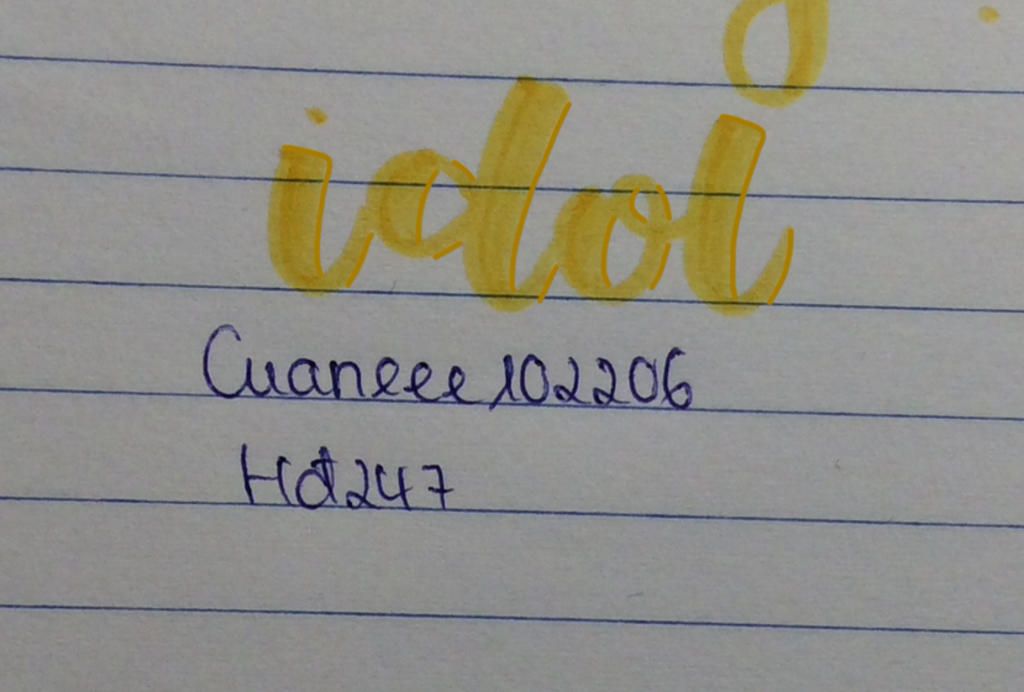 idol
Cuaneee102206
Hdt247